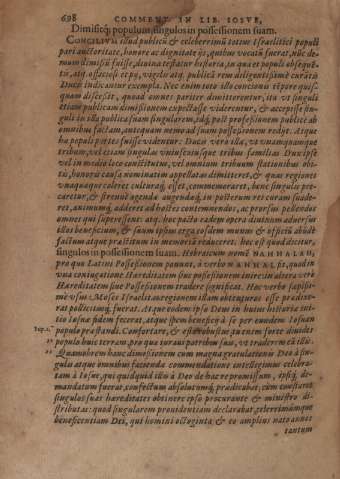 698 COMMENT. IN LIB. IOSVE,
Dimisitq́; populum, singulos in possessionem suam.
CONCILIVM illud publicū & celeberrimū totius Israelitici populi
pari auctoritate, honore ac dignitate ijs, quibus vocati fuerat, nūc de-
mum dimissū fuisse, diuina testatur historia, in qua et populi obseque-
tis, atq. officiosi et pij, vigilis atq. publicā rem diligentissimè curātis
Ducis indicantur exempla. Nec enim toto illo concionis tēpore quis-
quam discessit, quoad omnes pariter dimitterentur, ita vt singuli
etiam publicam dimissionem expectasse videantur, & accepisse sin-
guli in illa publica suam singularem, sed, post professionem publicè ab
omnibus factam, antequam memo ad suam possessionem redijt. Atque
hæ populi partes fuisse videntur: Ducis verò illa, vt vnamquamque
tribum, vel etiam singulas vniuscuiusque tribus familias Dux ipse
vel in medio loco constitutus, vel omnium tribuum stationibus obi-
tis, honoris causa nominatim appellatas dimitteret, & quas regiones
vnaquæque coleret culturaq́; esset, commemoraret, hanc singulis pre-
caretur, & strenuè agendā augendāq́; in posterum rei curam suade-
ret, animumq́; adderet ad hostes contemnendos, ac prorsus pellendos
omnes qui superessent: atq. hoc pacto eadem opera diuinum aduersus
illos beneficium, & suum ipsius erga eosdem munus & officiū abūdè
factum atque præstitum in memoriā reduceret. hoc est quod dicitur,
singulos in possessionem suam. Hebraicum nomē NAHHALAH,
pro quo Latinè Possessionem ponunt, à verbo NAHHAL fit, quod in
vna coniugatione Hæreditatem siue possessionem inire, in altera verò
Hæreditatem siue Possessionem tradere significat. Hoc verbo sæpissi-
mè vsus Moses Israelitas regionem illam obtenturos esse prædixe-
rat pollicitusq́; fuerat. Atque eodem ipse Deus in huius historiæ ini-
tio Iosuæ fidem fecerat, atque spem beneficij à se per eundem Iosuam
populo præstandi. Confortare, & esto robustus: tu enim sorte diuides
populo huic terram, pro qua iuraui patribus suis, vt traderem eā illis.
Quamobrem hanc dimissionem cum magna gratulatione Deo à sin-
gulis atque omnibus facienda commendatione intelligimus celebra-
tam à Iosue, qui quidquid illi à Deo de hac re promissum, ipsiq́; de-
mandatum fuerat, confectum absolutumq́; prædicabat, cùm constaret
singulos suas hæreditates obtinere ipso procurante & ministro di-
stributas: quod singularem prouidentiam declarabat, celerrimumque
beneficentiam Dei, qui homini octoginta & eo amplius natos annos
tantum
Iosu. 1.